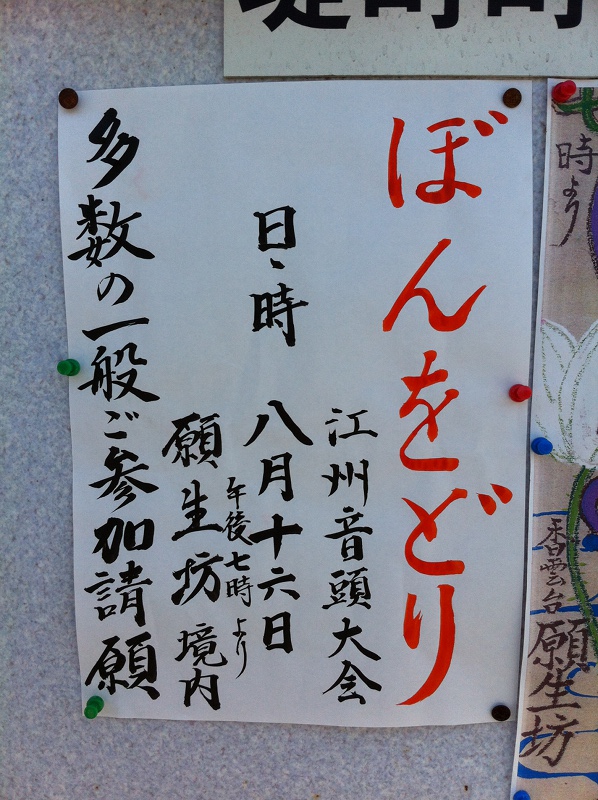 ぼんをどり
江州音頭大会
日時 八月十六日
午後七時より
願生坊境内
多数の一般ご参加請願
時より
香雲台 願生坊